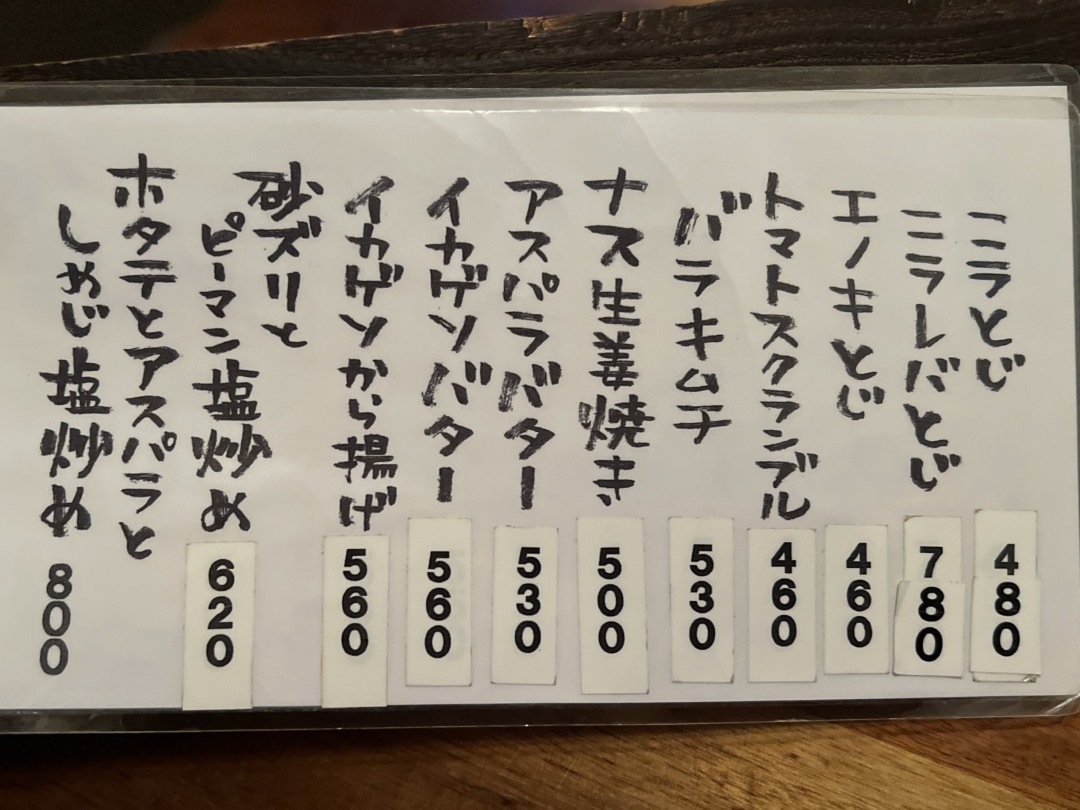 ニラとじ
480
ニラレバとじ
780
エノキとじ
460
トマトスクランブル
460
バラキムチ
530
ナス生姜焼き
500
アスパラバター
530
イカゲソバター
560
イカゲソから揚げ
560
砂ズリと
ピーマン塩炒め
620
ホタテとアスパラと
しめじ塩炒め
800